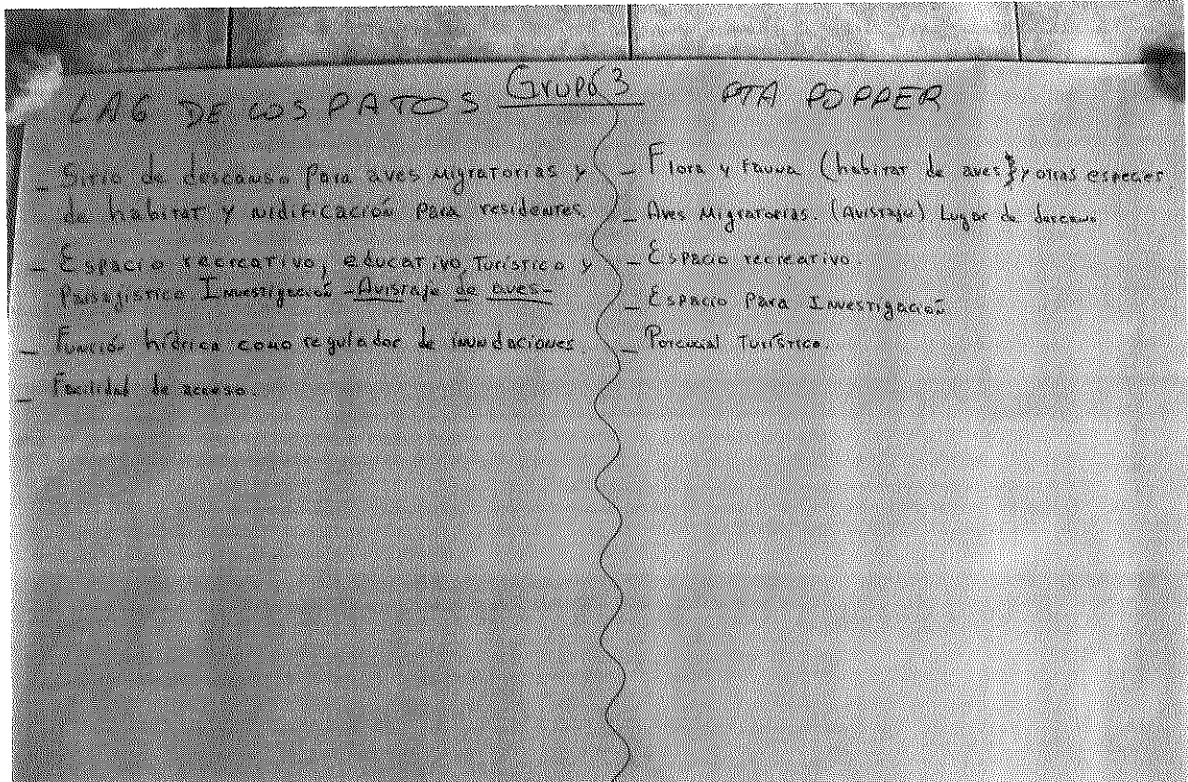 GRUPO 3
LAG DE LOS PATOS
- Sitio de descanso para aves migratorias y
de habitat y nidificación para residentes.
- Espacio recreativo, educativo, turístico y
Paisajístico Investigación - Avistaje de aves -
- Función hídrica como regulador de inundaciones.
- Facilidad de acceso.
PTA POPPER
- Flora y Fauna (habitat de aves} y otras especies
- Aves Migratorias. (Avistaje) Lugar de descanso
- Espacio recreativo.
- Espacio para Investigación
- Potencial Turístico.